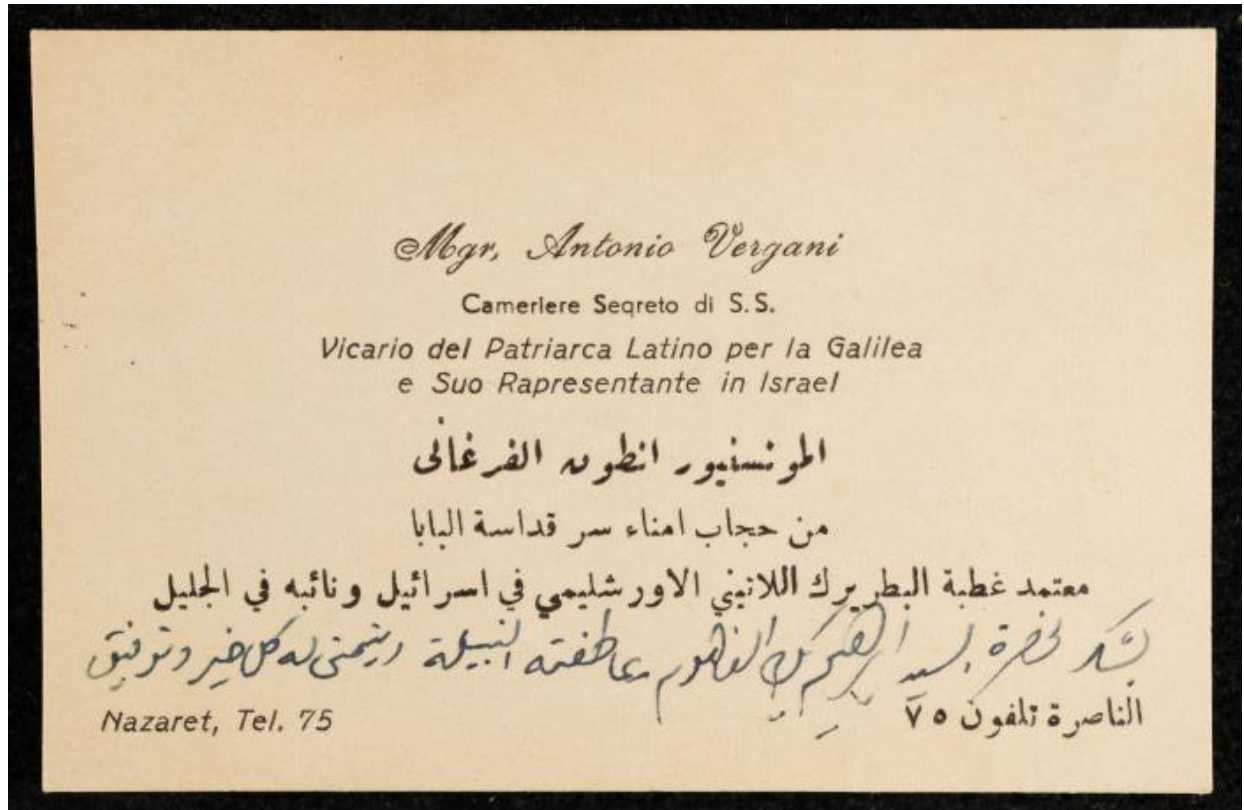 Mgr, Antonio Vergani
Cameriere Segreto di S.S.
Vicario del Patriarca Latino per la Galilea
e Suo Rapresentante in Israel
المونسنيور انطون الفرغانى
من حجاب امناء سر قداسة البابا
معتمد غطبة البطريرك اللاتيني الاورشليمي في اسرائيل ونائبه في الجليل
يشكر لحضرة السيد ابراهيم بك الفاهوم عاطفته النبيلة ويتمنى له كل خير وتوفيق
Nazaret, Tel. 75
الناصرة تلفون ٧٥